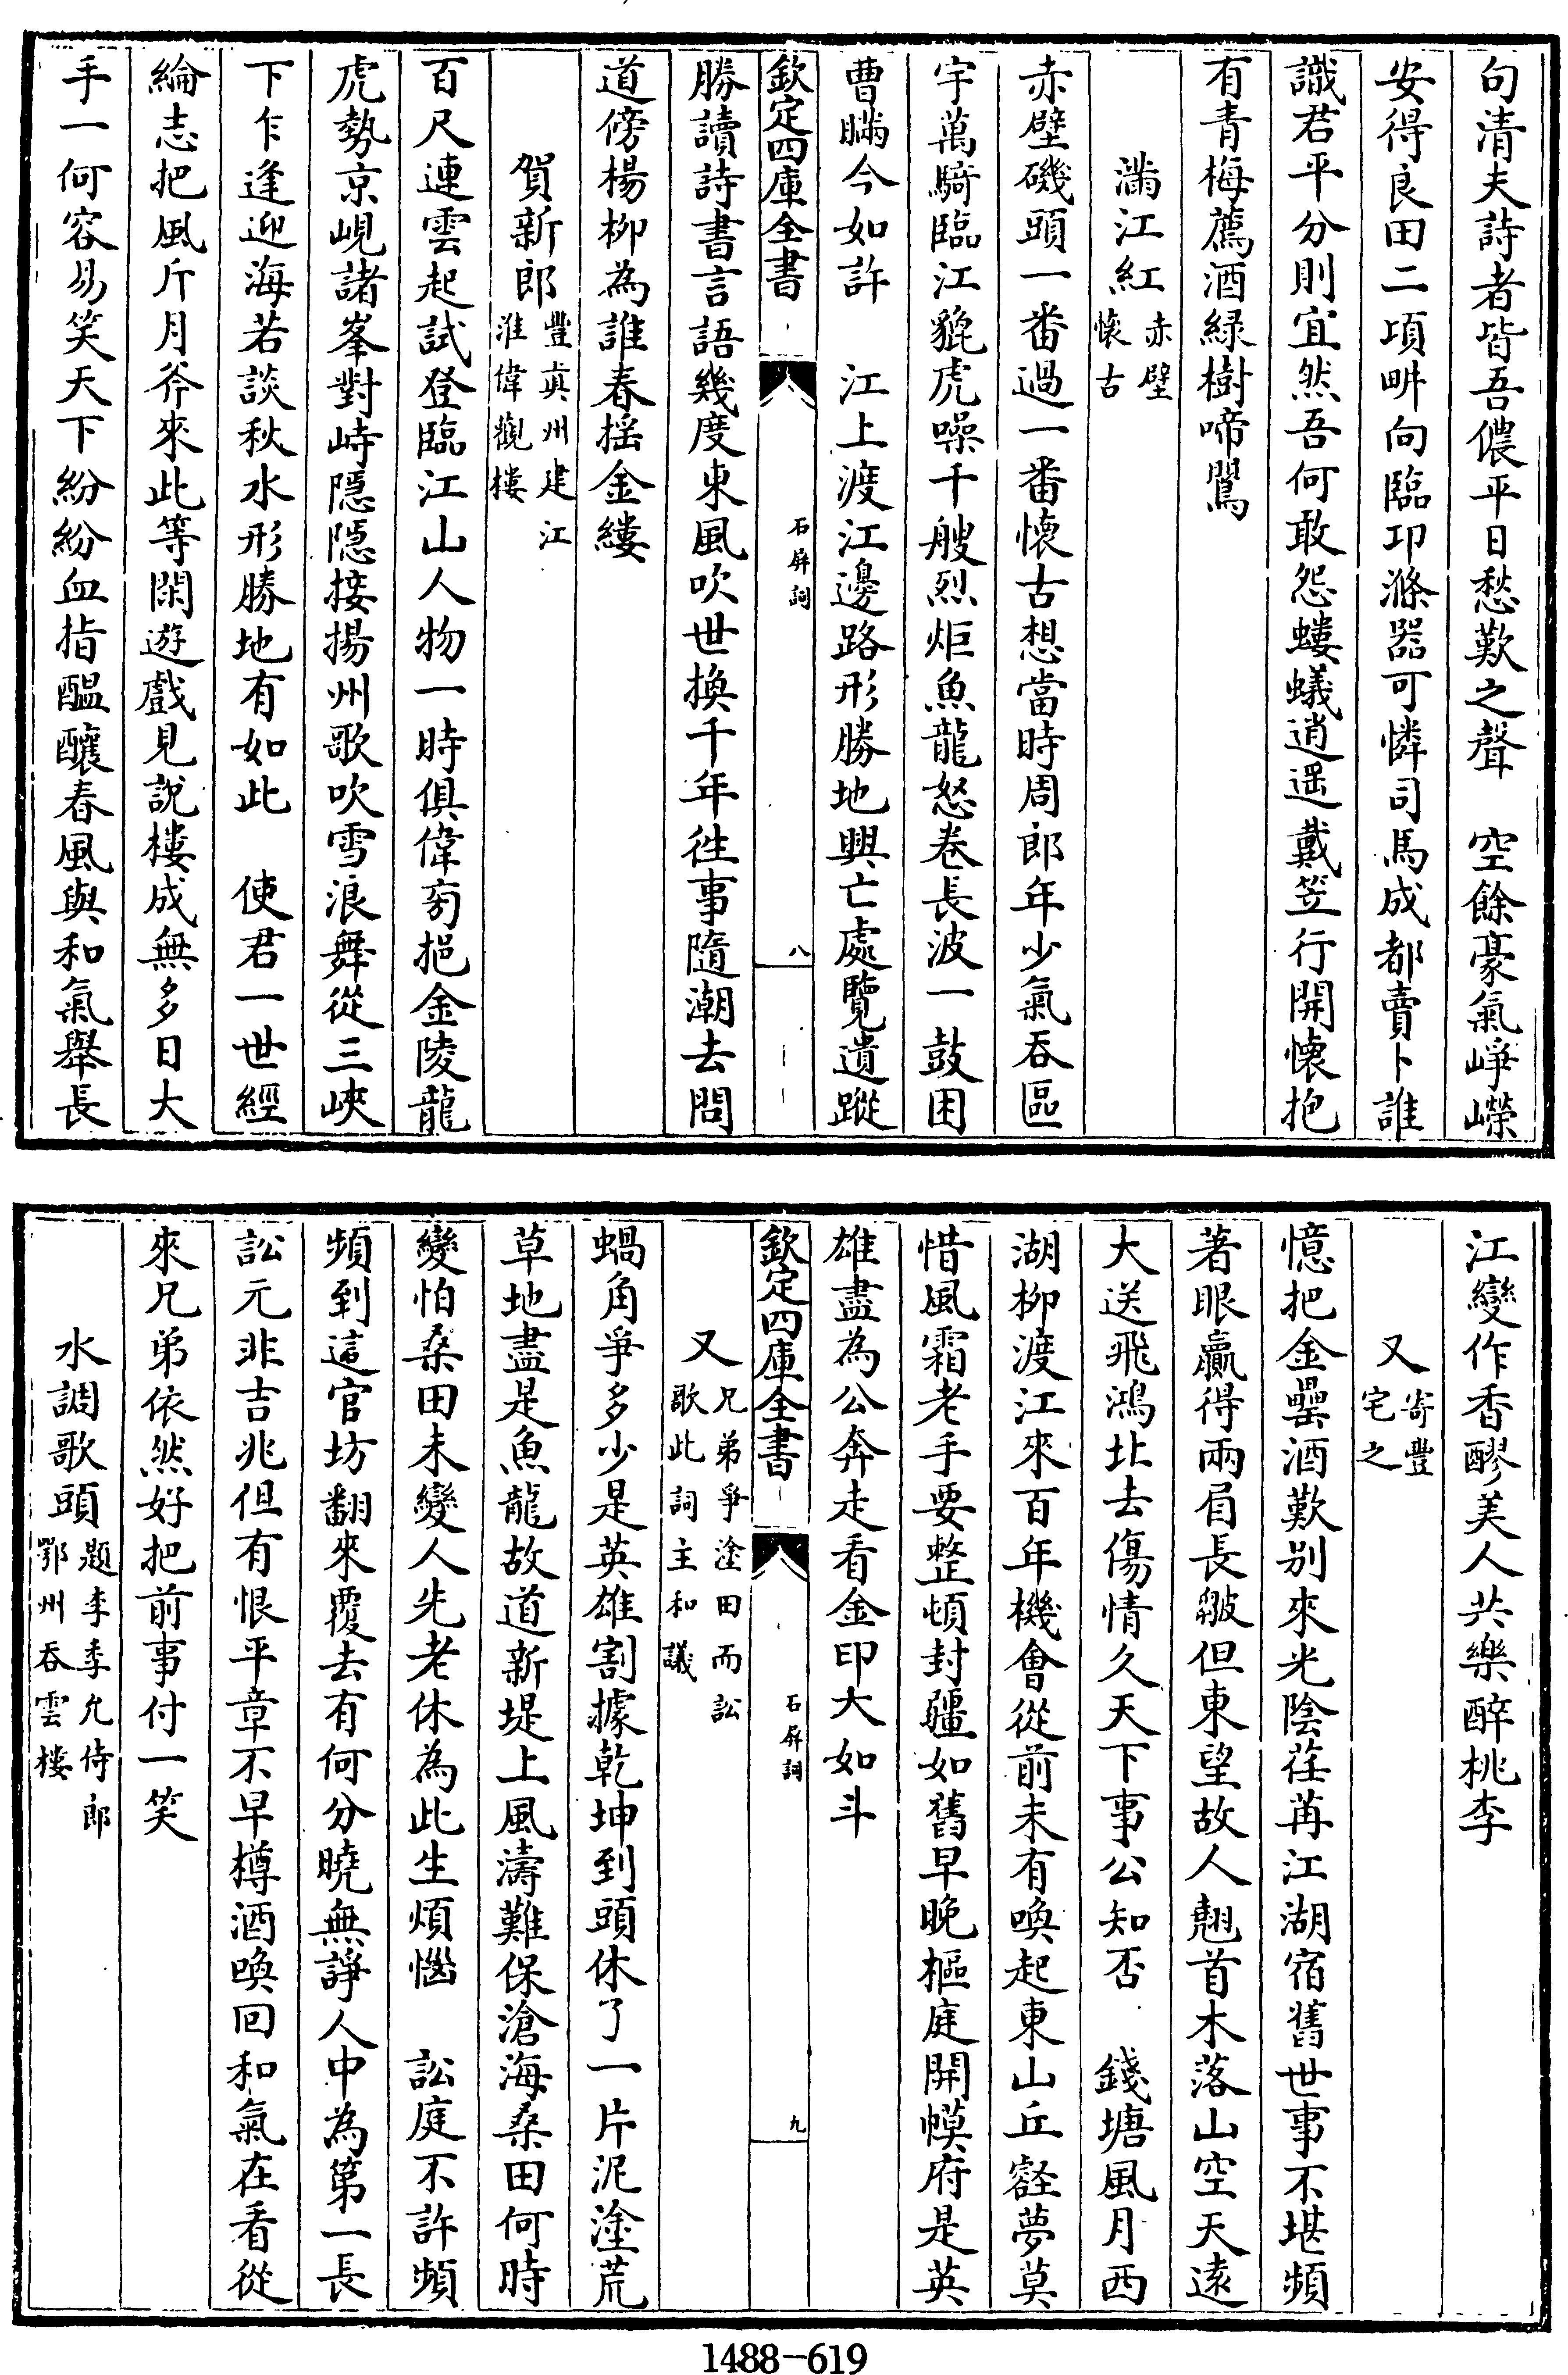 句清夫詩者皆吾儂平日愁歎之聲　空餘豪氣崢嶸
安得良田二項畊向臨卭滌器可憐司馬成都賣卜誰
識君平分則宜然吾何敢怨螻蟻逍遥戴笠行開懷抱
有青梅薦酒緑樹啼鶯
滿江紅赤壁懷古
赤壁磯頭一番過一番懷古想當時周郎年少氣吞區
宇萬騎臨江貔虎噪千艘烈炬魚龍怒卷長波一鼓困
曹瞞今如許　江上渡江邊路形勝地興亡處覽遺蹤
欽定四庫全書　石屏詞　八
勝讀詩書言語幾度東風吹世換千年徃事隨潮去問
道傍楊柳為誰春揺金縷
賀新郎豐真州建江淮偉觀樓
百尺連雲起試登臨江山人物一時俱偉旁挹金陵龍
虎勢京峴諸峯對峙隱隱接揚州歌吹雪浪舞從三峽
下乍逢迎海若談秋水形勝地有如此　使君一世經
綸志把風斤月斧來此等閑遊戲見說樓成無多日大
手一何容易笑天下紛紛血指醖釀春風與和氣舉長
江變作香醪美人共樂醉桃李
又寄豐宅之
憶把金罍酒歎别來光陰荏苒江湖宿舊世事不堪頻
著眼贏得兩眉長皺但東望故人翹首木落山空天遠
大送飛鴻北去傷情久天下事公知否　錢塘風月西
湖柳渡江來百年機會從前未有喚起東山丘壑夢莫
惜風霜老手要整頓封疆如舊早晚樞庭開幙府是英
雄盡為公奔走看金印大如斗
欽定四庫全書　石屏詞　九
又兄弟爭塗田而訟歌此詞主和議
蝸角爭多少是英雄割據乾坤到頭休了一片泥塗荒
草地盡是魚龍故道新堤上風濤難保滄海桑田何時
變怕桑田未變人先老休為此生煩惱　訟庭不許頻
頻到這官坊翻來覆去有何分曉無諍人中為第一長
訟元非吉兆但有恨平章不早樽酒喚回和氣在看從
來兄弟依然好把前事付一笑
水調歌頭題李季允侍郎鄂州吞雲樓
1488-619